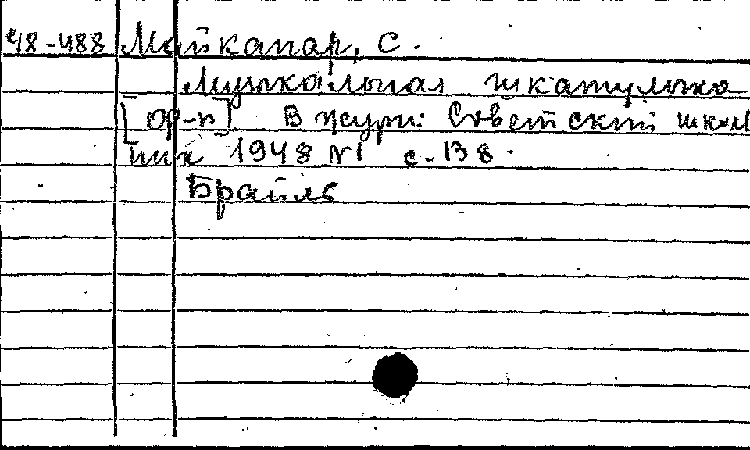 48-488 Майкапар, С.
Музыкальная шкатулка
[ф-п] В журн: Советский школь
ник 1948 №1 с.138.
Брайль